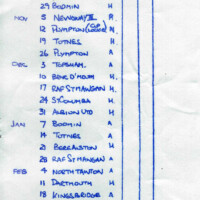 29 BODMIN H
NOV 5 NEWQUAY H
12 PLYMPTON (CUP) H
19 TOTNES H
26 PLYMPTON A
DEC 3 TOPSHAM. A
10 BERE D'MOM H.
17 RAF ST MAWGAN H.
24 ST COLUMBA H
31 ALBION UTD H
JAN 7 BODMIN A
14 TOTNES A
21 BEREALSTON H
28 RAF ST MAWGAN A
FEB 4 NORTH TAWTON A
11 DARTMOUTH H
18 KINGSBRIDGE A